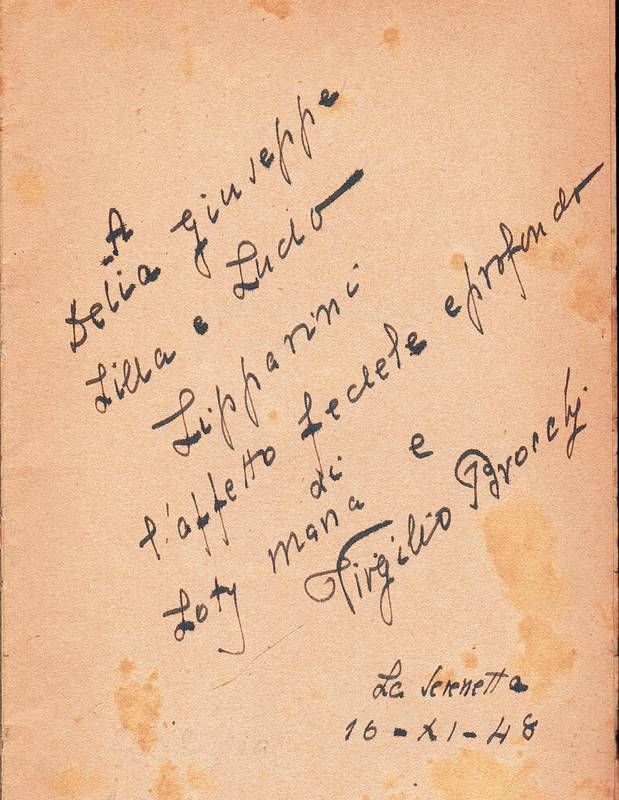 A
Delia Giuseppe
Lilla e Lucio
Lipparini
l'affetto fedele e profondo
di
Loty Maria e
Virgilio Brocchi
La Serenetta
16-XI-48